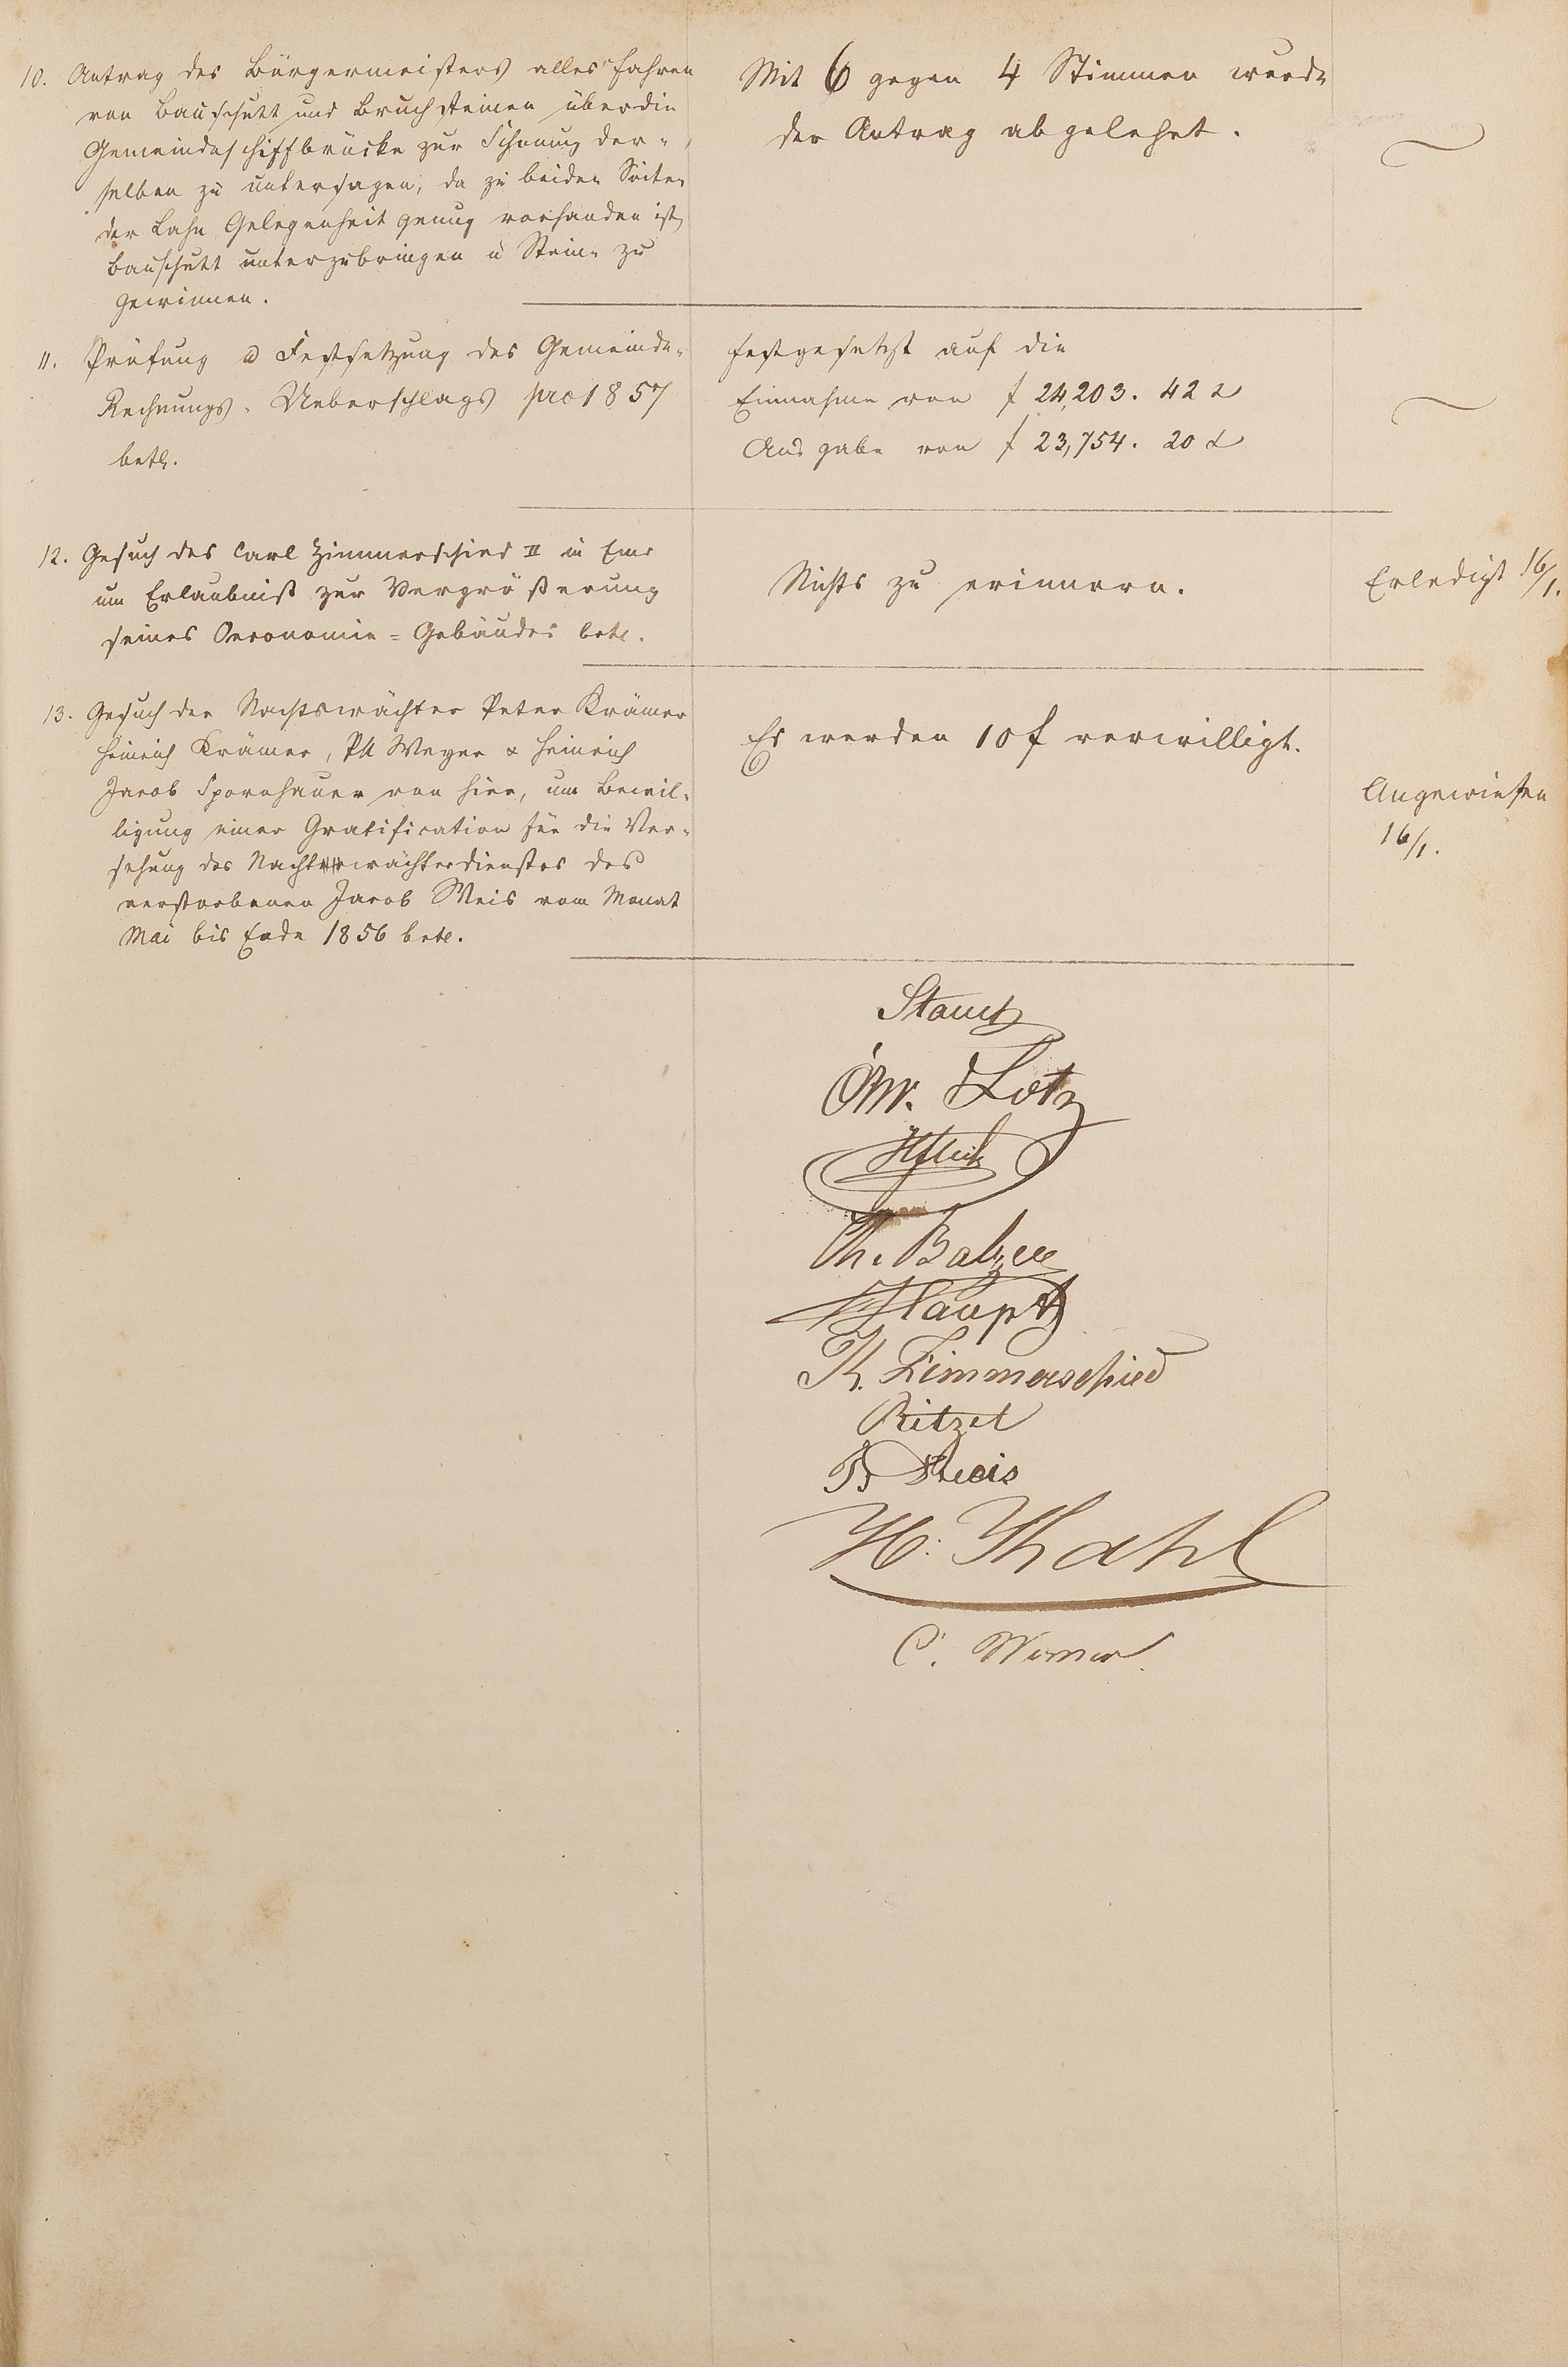 10. Antrag des Bürgermeisters alles Fahren
von Bauschutt und Bruchsteinen über die
Gemeindeschiffbrücke zur Schonung der-
selben zu untersagen, da zu beiden Seiten
der Lahn Gelegenheit genug vorhanden ist,
Bauschutt unterzubringen u Steine zu
gewinnen.
Mit 6 gegen 4 Stimmen wurde
der Antrag abgelehnt.
11. Prüfung u Festsetzung des Gemeinde-
Rechnungs-Ueberschlags pro 1857
betr.
Festgesetzt auf die
Einnahme von f 24,203. 42 x
Ausgabe von f 23,754. 20 x
12. Gesuch des Carl Zimmerschied II in Ems
um Erlaubniß zur Vergrößerung
seines Oeconomie=Gebäudes betr.
Nichts zu erinnern.
Erledigt 16/1.
13. Gesuch der Nachtswächter Peter Krämer
Heinrich Krämer, Ph Weyer & Heinrich
Jacob Spornhauer von hier, um Bewil-
ligung einer Gratification für die Ver-
sehung des Nachtwächterdienstes des
verstorbenen Jacob Weis vom Monat
Mai bis Ende 1856 betr.
Es werden 10 f verwilligt.
Angewiesen
16/1.
Lotz
Th. Balzer
Haupt
K. Zimmerschied
Ritzel
H. Thahl
C. Werner